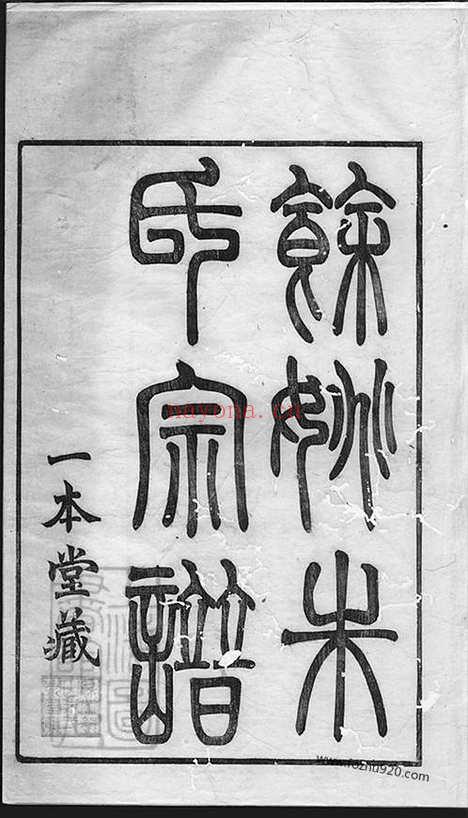 餘姚朱
氏宗譜
一本堂藏
nayona.cn
www.fozhu920.com